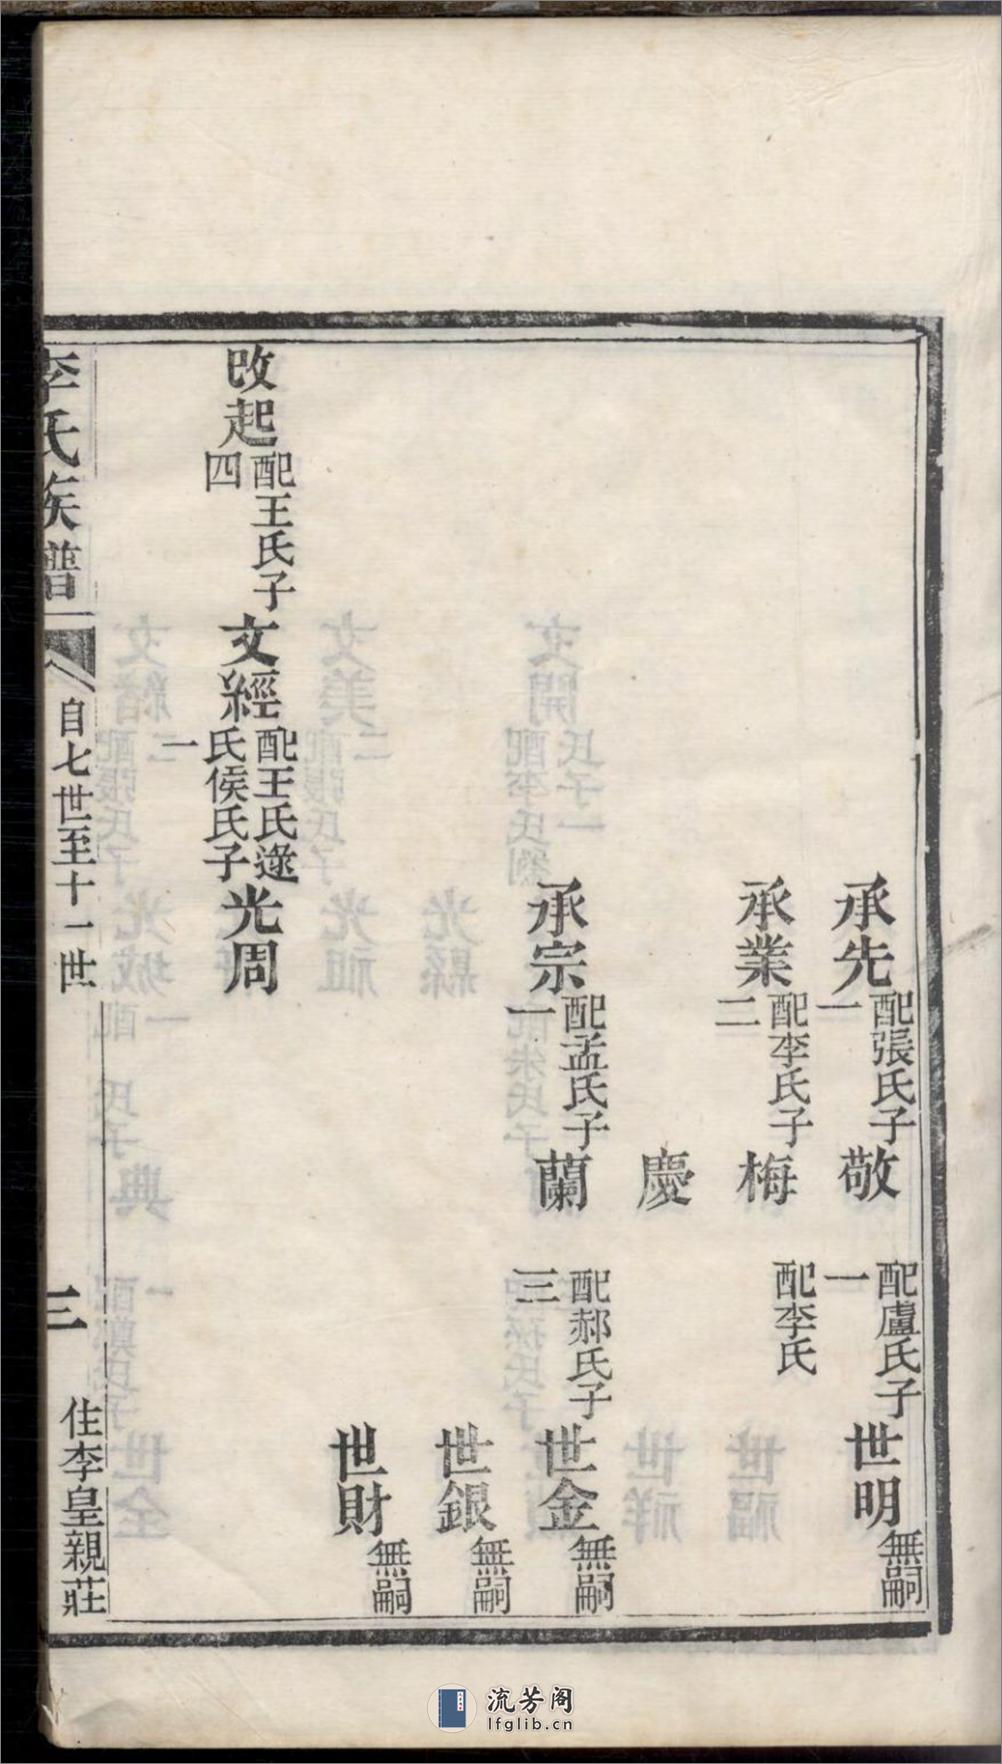 承先 配張氏子一 敬 配盧氏子一 世明 無嗣
承業 配李氏子二 梅 配李氏
慶
承宗 配孟氏子一 蘭 配郝氏子三 世金 無嗣
世銀 無嗣
世財 無嗣
改起 配王氏子四 文經 配王氏逯氏侯氏子一 光周
李氏族譜 自七世至十一世 三 住李皇親莊
流芳阁
lfglib.cn